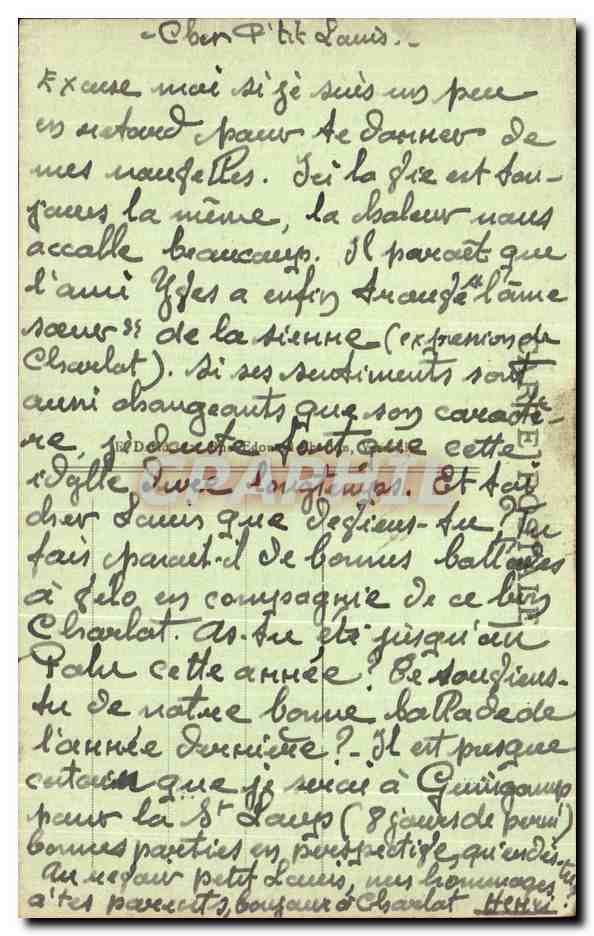 - Cher P'tit Louis. -
Excuse moi si je suis un peu
en retard pour te donner de
mes nouvelles. Ici la vie est tou-
jours la même, la chaleur nous
accable beaucoup. Il paraît que
l'ami Yves a enfin trouvé "l'âme
soeur" de la sienne (expression de
Charlot). Si ses sentiments sont
aussi changeants que son caractè-
re, j'doute fort que cette
idylle dure longtemps. Et toi
cher Louis que deviens-tu? Tu
fais parait-il de bonnes ballades
à vélo en compagnie de ce bon
Charlot. As-tu été jusqu'au
Palu cette année? Te souviens-
tu de notre bonne ballade de
l'année dernière? - Il est presque
certain que je serai à Guingamp
pour la St Loup (8 jours de perm)
bonnes parties en perspective, qu'en dis-tu?
Au revoir petit Louis, mes hommages
à tes parents, bonjour à Charlot Henri
CARTE POSTALE